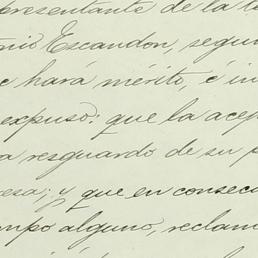 presentante de la t
nio Escandon, segun
e hará mérito, é in
expuso: que la acep
a resguardo de su p
esa; y que en consecu
mpo alguno, reclam